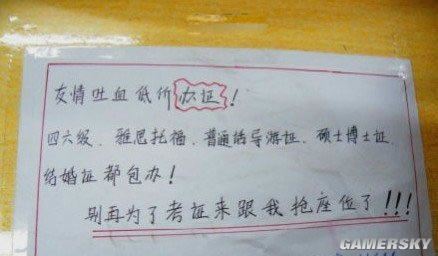 友情吐血低价办证!
四六级、雅思托福、普通话导游证、硕士博士证、
结婚证都包办!
别再为了考证来跟我抢座位了!!!
GAMERSKY